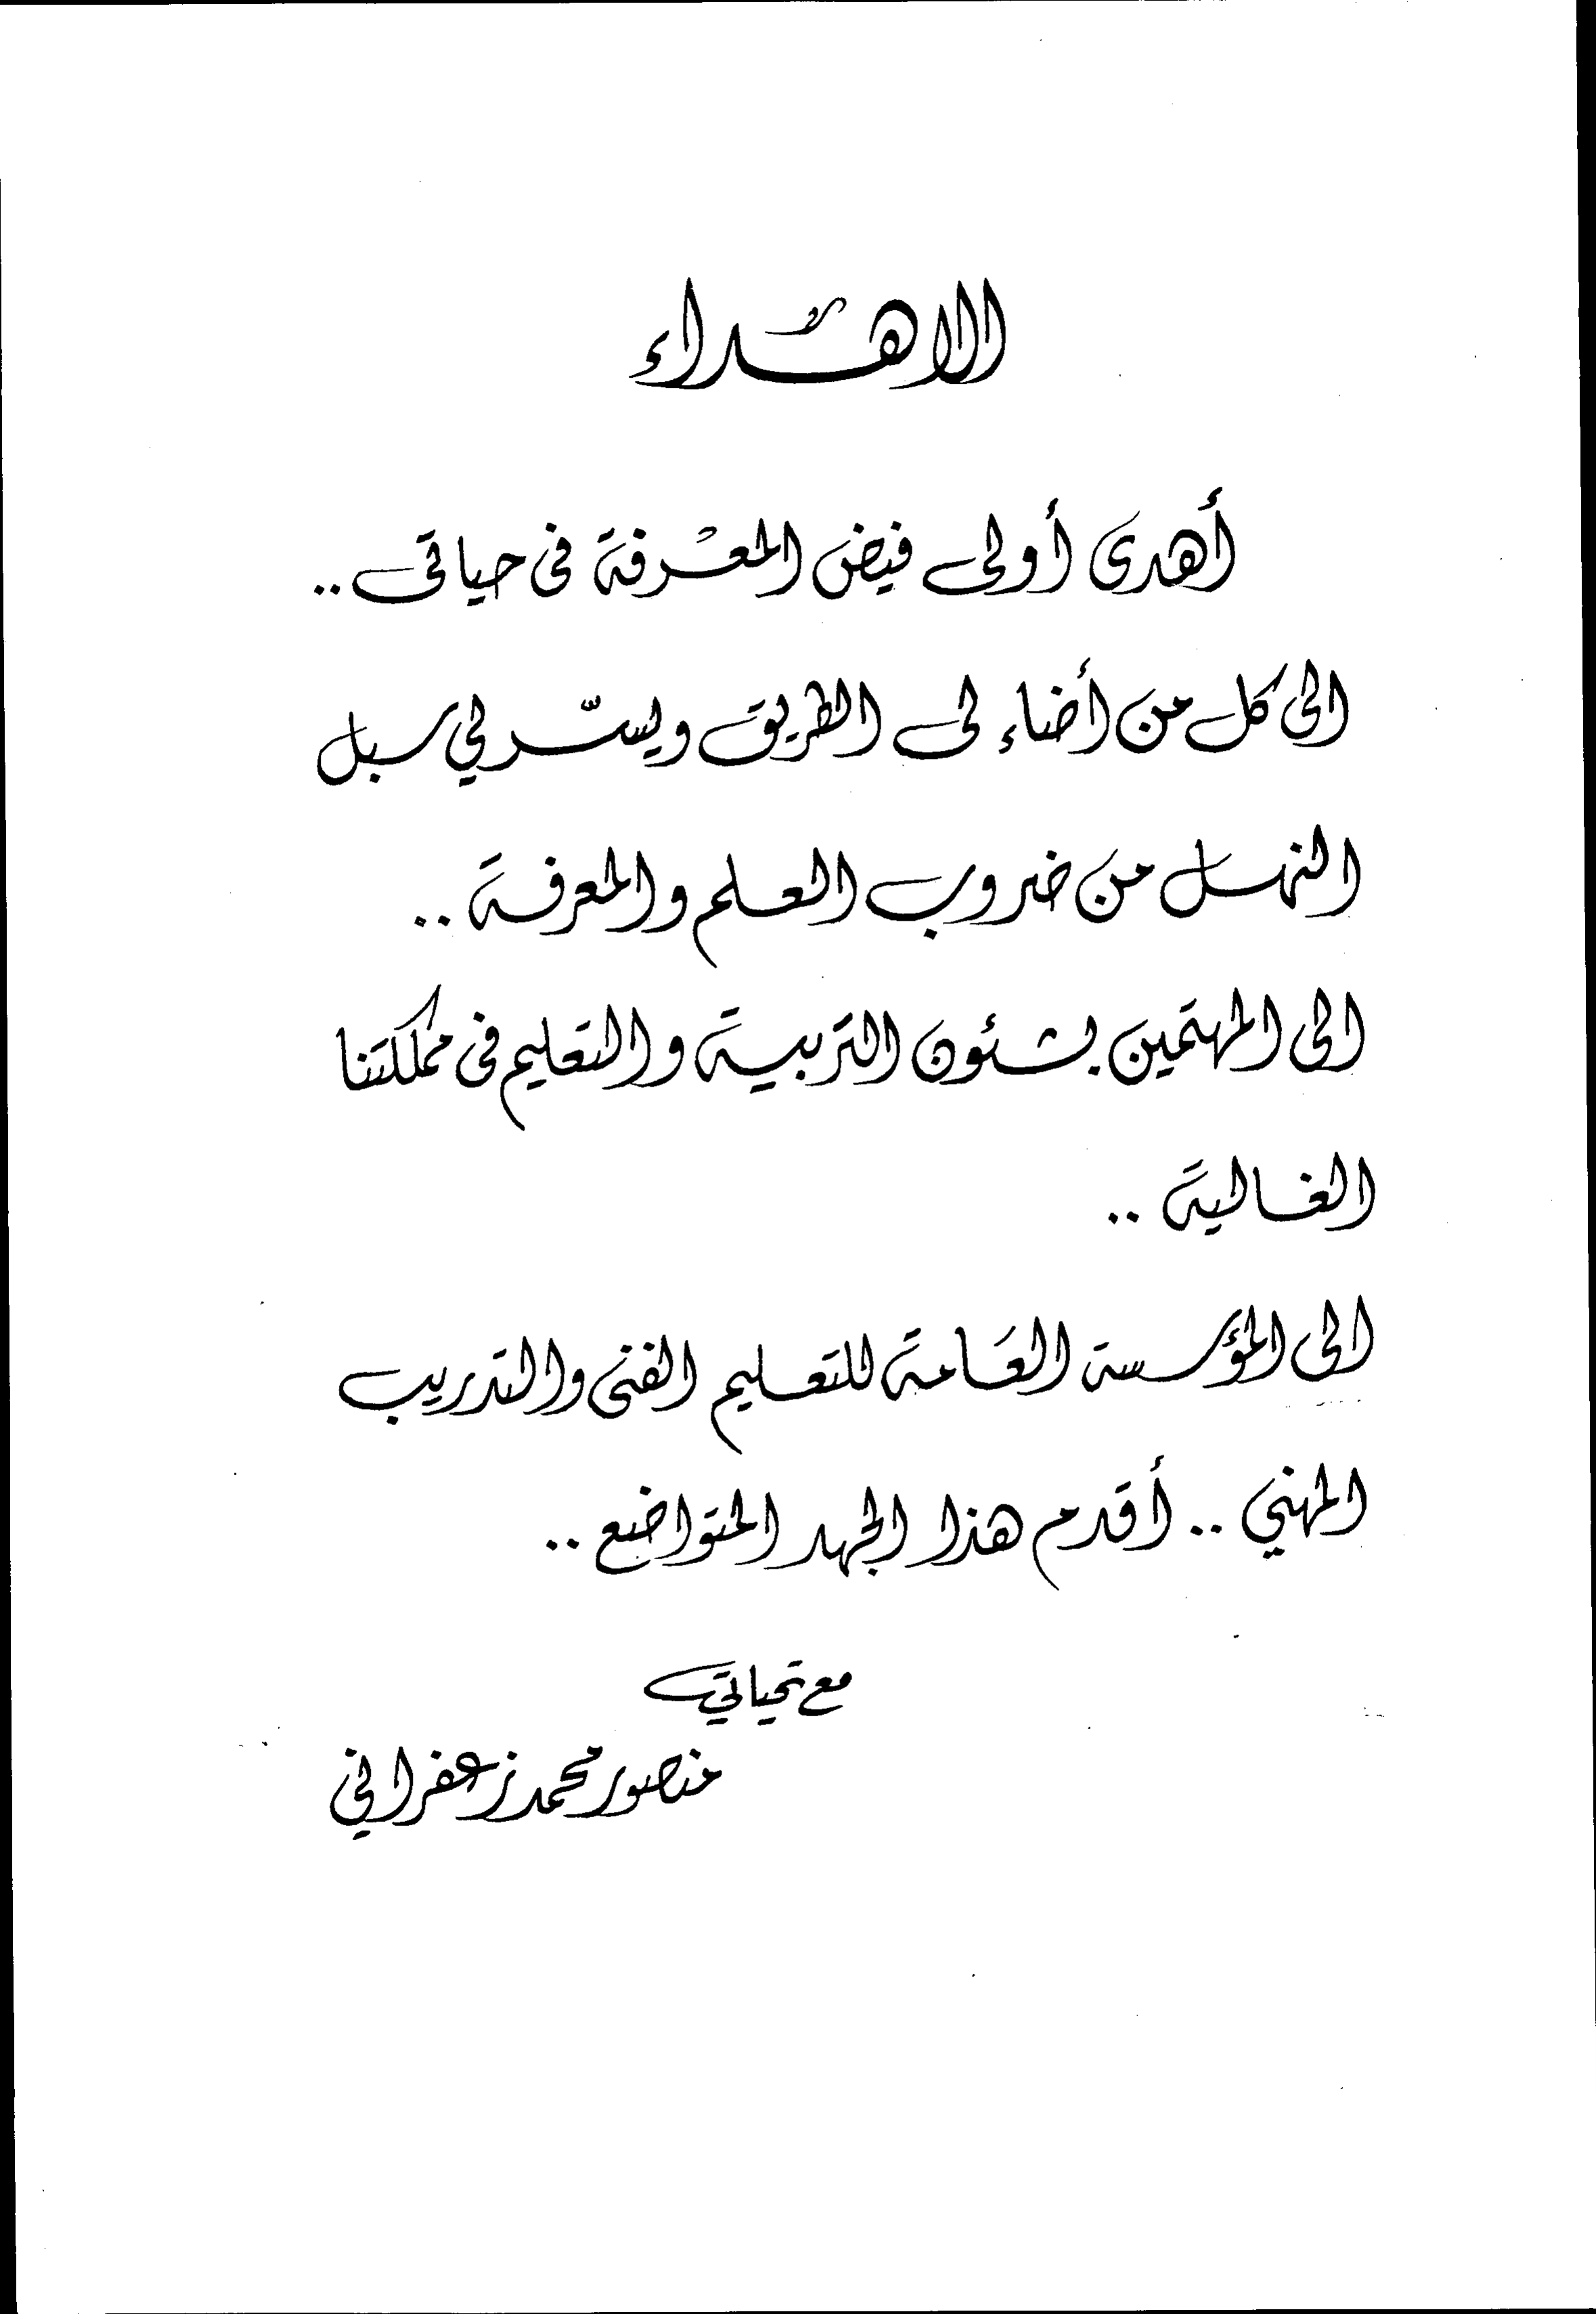 الاهداء
أهدى أولى فيض المعرفة فى حياتى ..
الى كل من أضاء لى الطريق ويسّر لي سبل
النهل من ضروب العلم والمعرفة ..
الى المهتمين بشئون التربية والتعليم فى مملكتنا
الغالية ..
الى المؤسسة العَامة للتعليم الفنى والتدريب
المهني .. أقدم هذا الجهد المتواضع ..
مع تحياتي
منصور محمد زعفراني